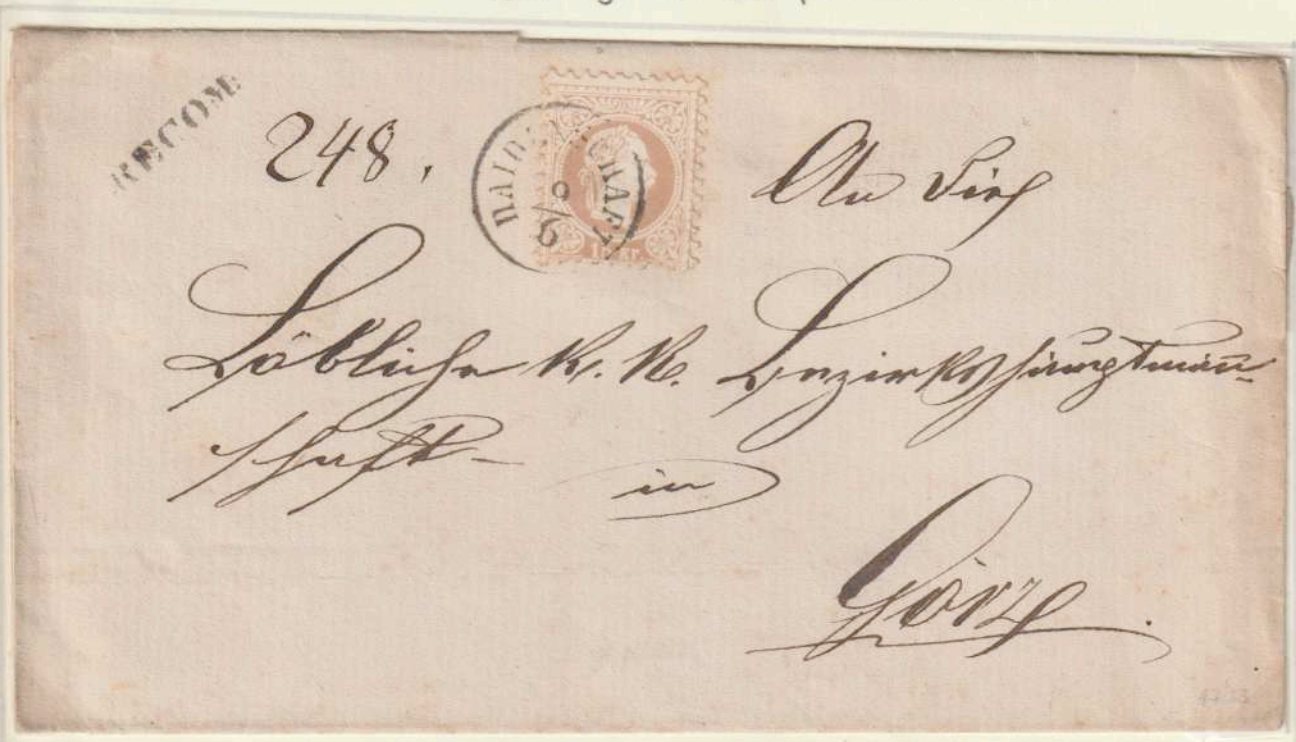 RECOM
248.
HAIDENSCHAFT
9/6
15 kr.
An die
Löbliche k. k. Bezirkshauptmann-
schaft
in
Görz.